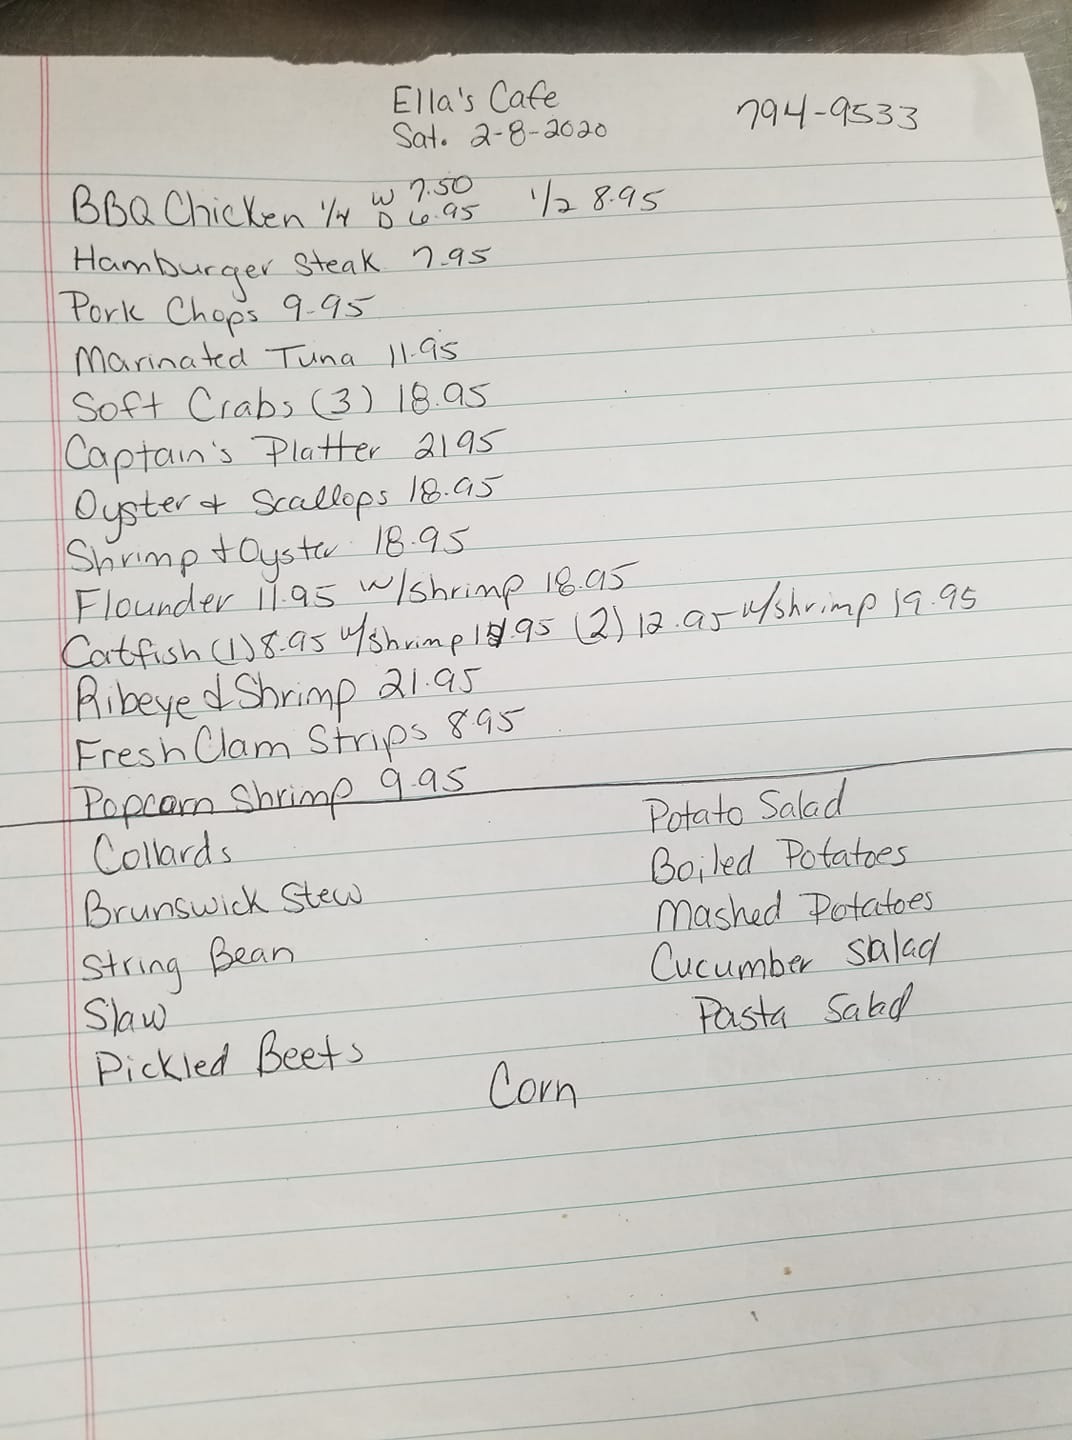 Ella's Cafe
Sat. 2-8-2020
794-9533
BBQ Chicken 1/4 W 7.50 D 6.95 1/2 8.95
Hamburger Steak 7.95
Pork Chops 9.95
Marinated Tuna 11.95
Soft Crabs (3) 18.95
Captain's Platter 21 95
Oyster + Scallops 18.95
Shrimp + Oyster 18.95
Flounder 11.95 w/shrimp 18.95
Catfish (1) 8.95 w/shrimp (2) 12.95 w/shrimp 19.95
Ribeye & Shrimp 21.95
Fresh Clam Strips 8.95
Popcorn Shrimp 9.95
Collards
Brunswick Stew
String Bean
Slaw
Pickled Beets
Potato Salad
Boiled Potatoes
Mashed Potatoes
Cucumber Salad
Pasta Salad
Corn